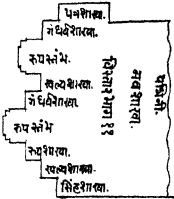 पत्रशाखा.
गंधर्वशाखा.
रूपस्तंभ
खल्वशाखा.
गंधर्वशाखा.
रूपस्तंभ
रूपशाखा.
खल्वशाखा.
सिंहशाखा.
विस्तार भाग ११
नवशाखा.
पद्मिनी.